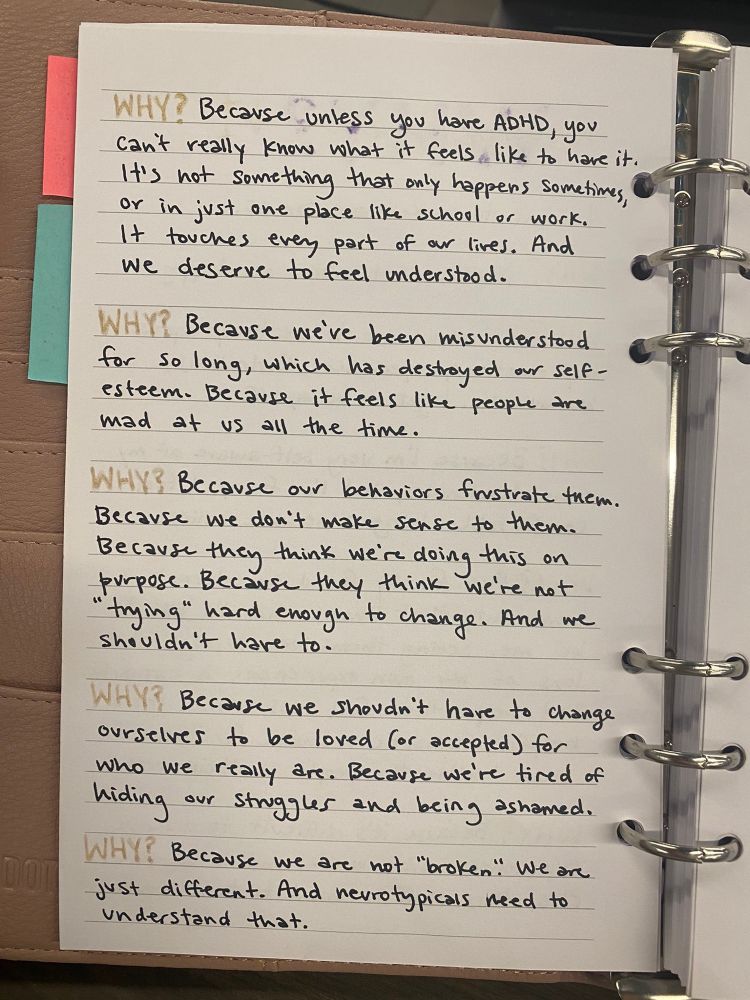 WHY? Because unless you have ADHD, you
can't really know what it feels like to have it.
It's not something that only happens sometimes,
or in just one place like school or work.
It touches every part of our lives. And
we deserve to feel understood.
WHY? Because we've been misunderstood
for so long, which has destroyed our self-
esteem. Because it feels like people are
mad at us all the time.
WHY? Because our behaviors frustrate them.
Because we don't make sense to them.
Because they think we're doing this on
purpose. Because they think we're not
"trying" hard enough to change. And we
shouldn't have to.
WHY? Because we shoudn't have to change
ourselves to be loved (or accepted) for
who we really are. Because we're tired of
hiding our struggles and being ashamed.
WHY? Because we are not "broken". We are
just different. And neurotypicals need to
understand that.